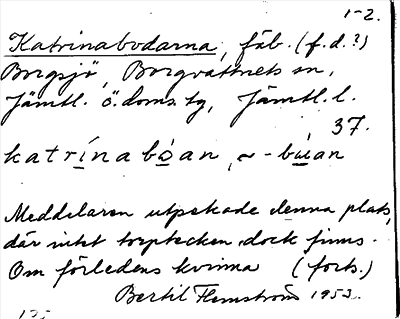 1-2.
Katrinabodarna, fäb. (f.d.?)
Borgsjö, Borgvattnets sn,
Jämtl. ö. doms. tg, Jämtl. l.
37.
katrína bó̲an, ~- bú̲an
Meddelaren utpekade denna plats,
där intet torptecken dock finns.
Om förledens kvinna (forts.)
Bertil Flemström 1953.